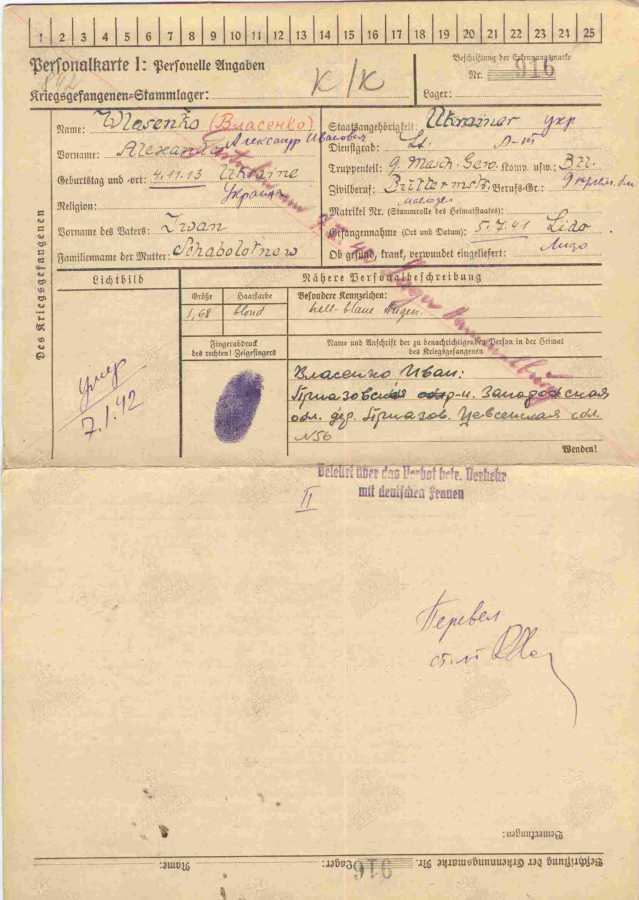 1 2 3 4 5 6 7 8 9 10 11 12 13 14 15 16 17 18 19 20 21 22 23 24 25
Personalkarte I: Personelle Angaben
Kriegsgefangenen-Stammlager: K/K
Beschriftung der Erkennungsmarke
Nr. 916
Lager:
Des Kriegsgefangenen
Name: Wlasenko (Власенко)
Vorname: Alexander Александр Иванович
Geburtstag und -ort: 4.11.13 Ukraine
Украина
Religion:
Vorname des Vaters: Iwan
Familienname der Mutter: Schabolotnew
Staatsangehörigkeit: Ukrainer укр
Dienstgrad: Lt. л-т
Truppenteil: 9. Masch. Gew. Komp. usw.:
Zivilberuf: Berufs-Gr.:
Matrikel Nr. (Stammrolle des Heimatstaates):
Gefangennahme (Ort und Datum): 5.7.41 Lido
Лидо
Ob gesund, krank, verwundet eingeliefert:
Lichtbild
умер
7.1.42
Nähere Personalbeschreibung
Größe Haarfarbe Besondere Kennzeichen:
1,68 blond hell-blaue Augen
Fingerabdruck
des rechten! Zeigefingers
Name und Anschrift der zu benachrichtigenden Person in der Heimat
des Kriegsgefangenen
Власенко Иван:
N56
Wenden!
Belehrt über das Verbot betr. Verkehr
mit deutschen Frauen
II
Перевел
ст. л-т
Bemerkungen:
Beschriftung der Erkennungsmarke Nr. 916 Lager: Name: